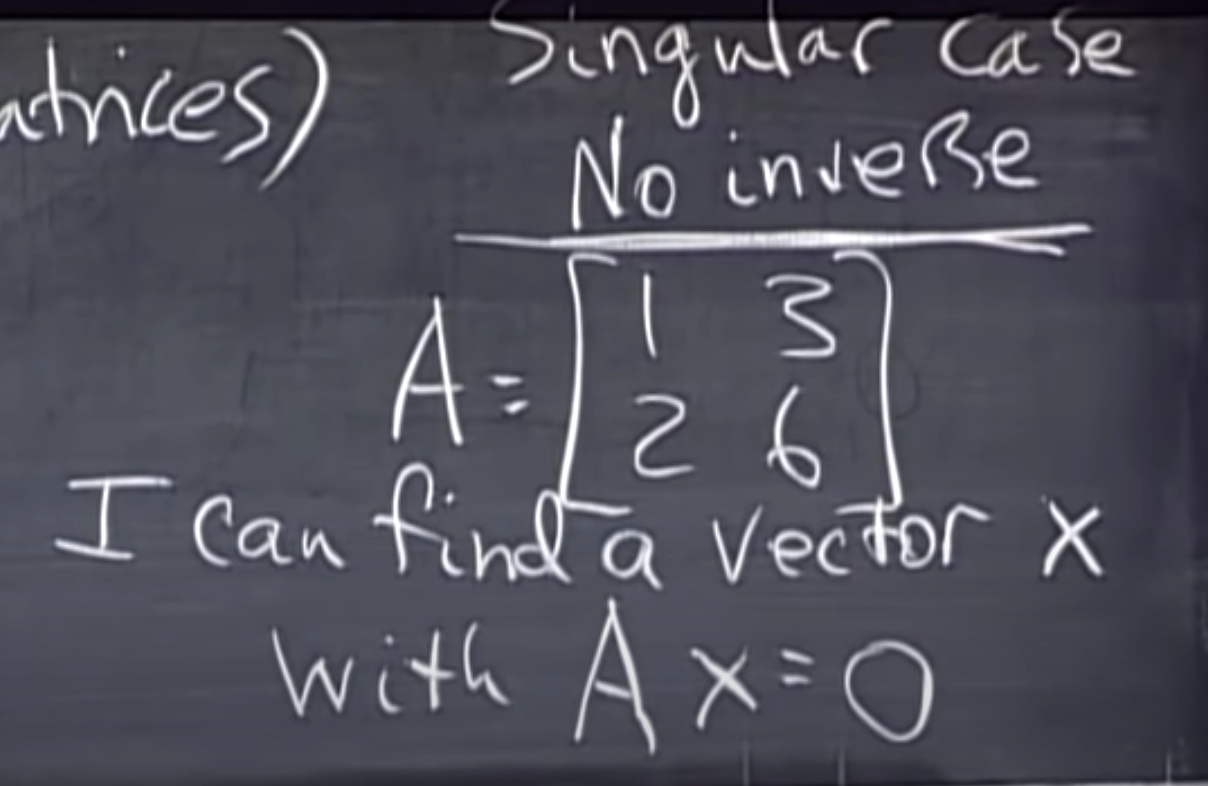 atrices)
Singular case
No inverse
A = [1 3
2 6]
I can find a vector x
with A x = 0